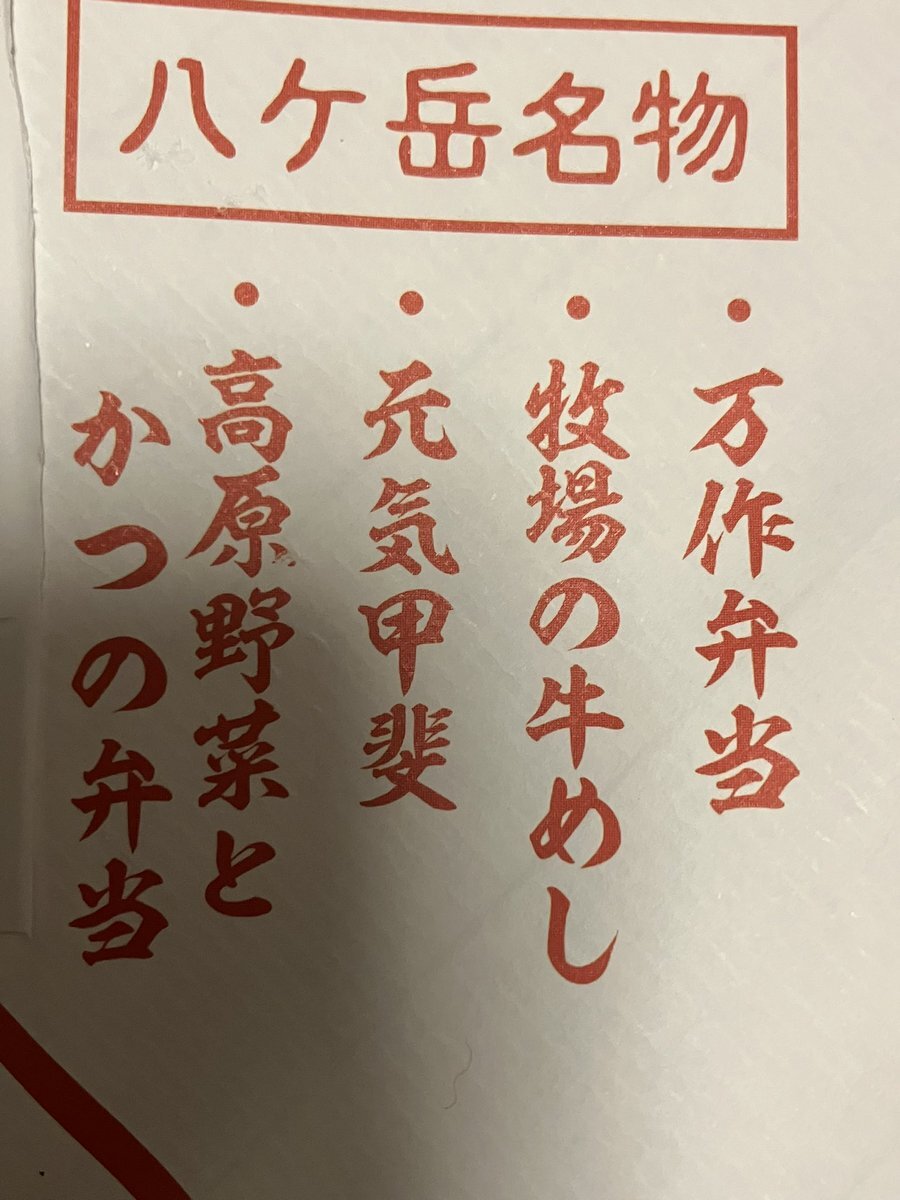 八ケ岳名物
・万作弁当
・牧場の牛めし
・元気甲斐
・高原野菜と
かつの弁当